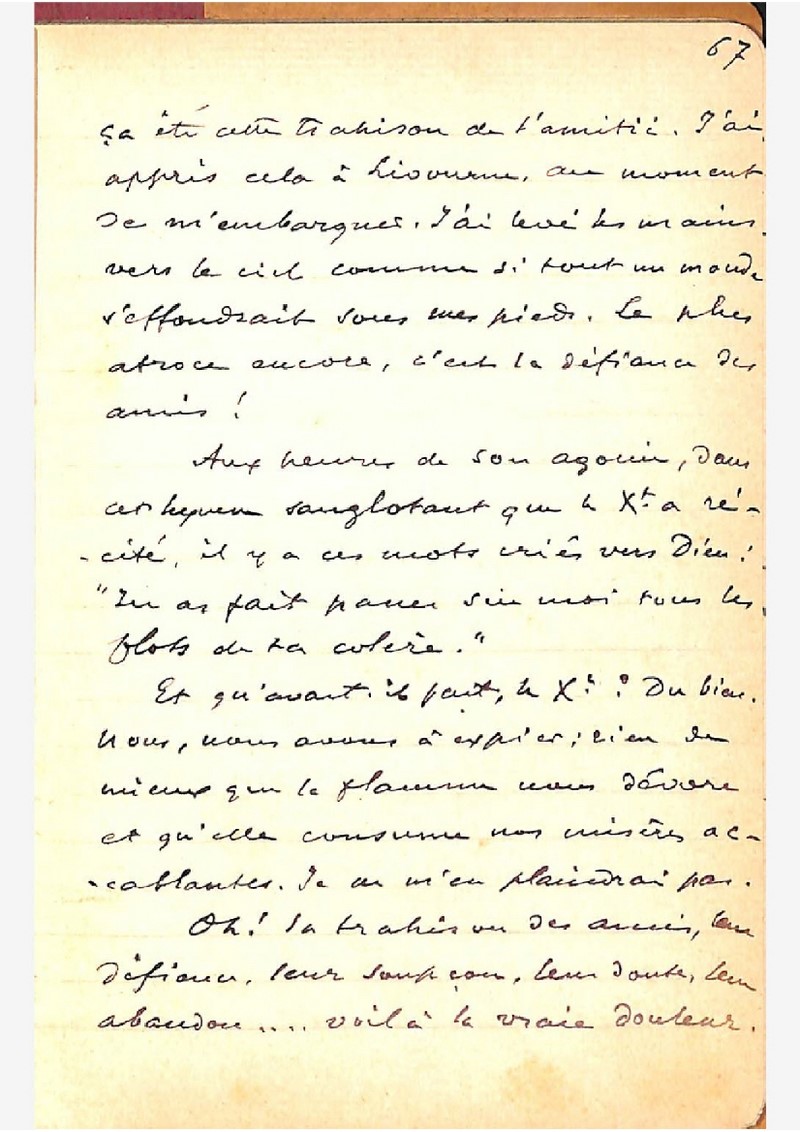 67
ça été cette trahison de l'amitié. J'ai
appris cela à Livourne, au moment
de m'embarquer. J'ai levé les mains
vers le ciel comme si tout un monde
s'effondrait sous mes pieds. Le plus
atroce encore, c'est la défiance des
amis !
Aux heures de son agonie, dans
cet hymne sanglotant que le Xt a ré-
-cité, il y a ces mots criés vers Dieu :
"Tu as fait passer sur moi tous les
flots de ta colère."
Et qu'avait-il fait, le Xt ? Du bien.
Nous, nous avons à expier ; rien de
mieux que la flamme nous dévore
et qu'elle consume nos misères ac-
-cablantes. Je ne m'en plaindrai pas.
Oh! la trahison des amis, leur
défiance, leur soupçon, leur doute, leur
abandon .... voilà la vraie douleur.